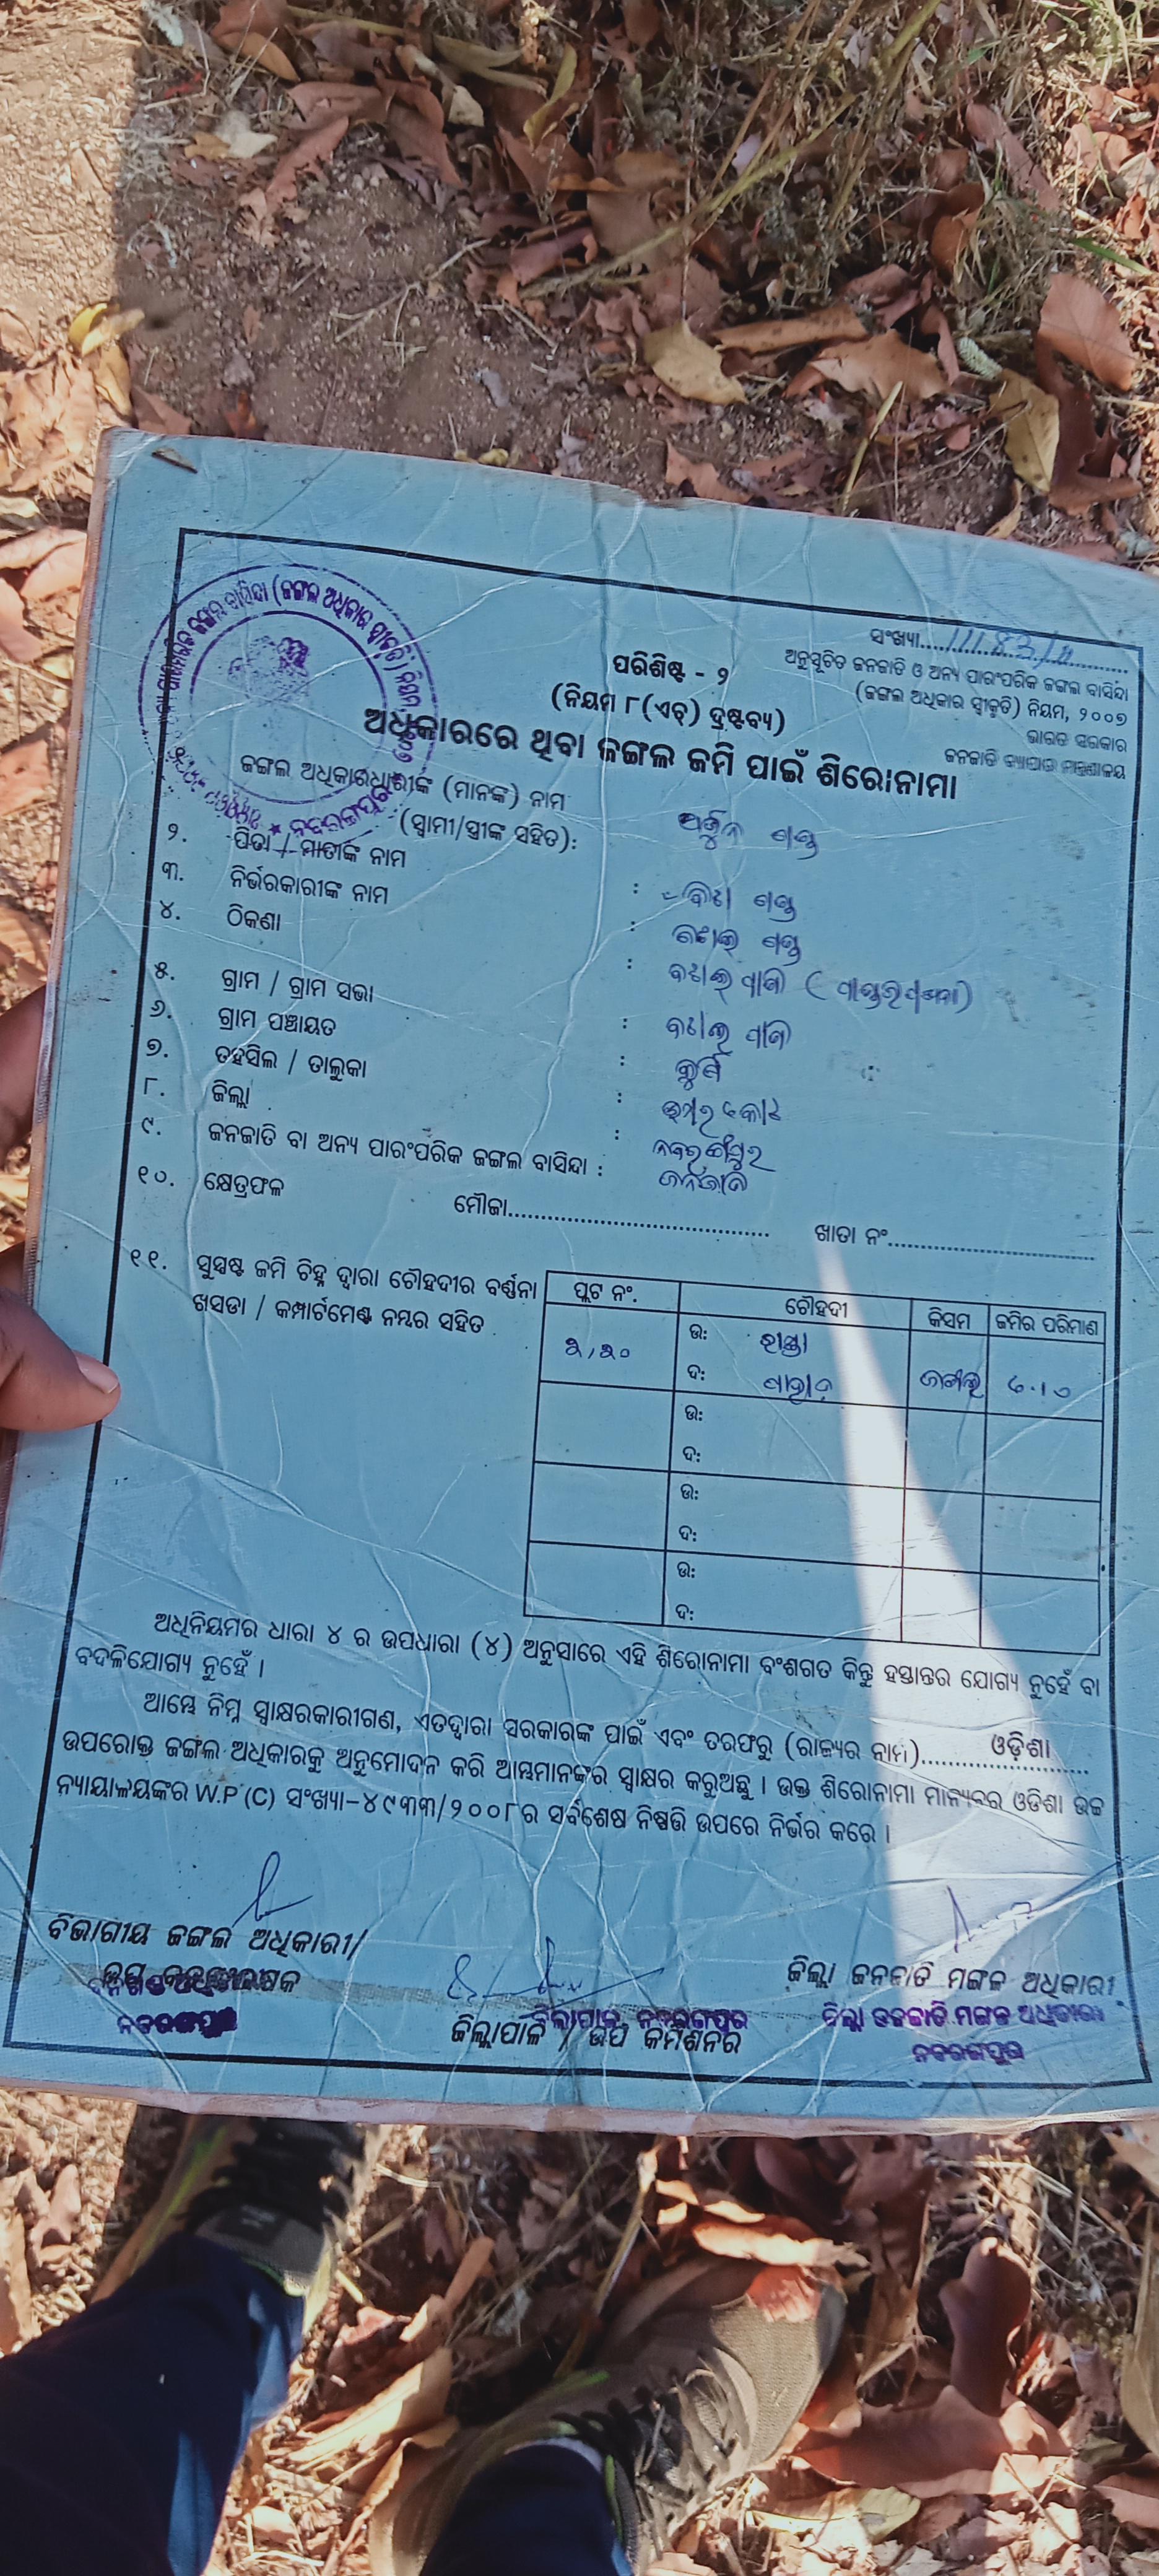 ସଂଖ୍ୟା
ଅନୁସୂଚିତ ଜନଜାତି ଓ ଅନ୍ୟ ପାରଂପରିକ ଜଙ୍ଗଲ ବାସିନ୍ଦା
(ଜଙ୍ଗଲ ଅଧିକାର ସ୍ୱୀକୃତି) ନିୟମ, ୨୦୦୭
ଭାରତ ସରକାର
ଜନଜାତି ବ୍ୟାପାର ମନ୍ତ୍ରଣାଳୟ
ପରିଶିଷ୍ଟ - ୨
(ନିୟମ ୮(ଏଚ୍) ଦ୍ରଷ୍ଟବ୍ୟ)
ଅଧିକାରରେ ଥିବା ଜଙ୍ଗଲ ଜମି ପାଇଁ ଶିରୋନାମା
ଜଙ୍ଗଲ ଅଧିକାରଧାରୀଙ୍କ (ମାନଙ୍କ) ନାମ
(ସ୍ୱାମୀ/ସ୍ତ୍ରୀଙ୍କ ସହିତ): ଅର୍ଜୁନ ଗଣ୍ଡ
୨. ପିତା / ମାତାଙ୍କ ନାମ : ଗଣ୍ଡ
୩. ନିର୍ଭରକାରୀଙ୍କ ନାମ : ଗଣ୍ଡ
୪. ଠିକଣା :
୫. ଗ୍ରାମ / ଗ୍ରାମ ସଭା :
୬. ଗ୍ରାମ ପଞ୍ଚାୟତ :
୭. ତହସିଲ / ତାଲୁକା : ଉମରକୋଟ
୮. ଜିଲ୍ଲା : ନବରଙ୍ଗପୁର
୯. ଜନଜାତି ବା ଅନ୍ୟ ପାରଂପରିକ ଜଙ୍ଗଲ ବାସିନ୍ଦା : ଜନଜାତି
୧୦. କ୍ଷେତ୍ରଫଳ ମୌଜା ଖାତା ନଂ
୧୧. ସୁସ୍ପଷ୍ଟ ଜମି ଚିହ୍ନ ଦ୍ୱାରା ଚୌହଦୀର ବର୍ଣ୍ଣନା
ଖସଡା / କମ୍ପାର୍ଟମେଣ୍ଟ ନମ୍ବର ସହିତ
ପ୍ଲଟ ନଂ. ଚୌହଦୀ କିସମ ଜମିର ପରିମାଣ
ଉ: ରାସ୍ତା
ଦ: ପାହାଡ ଜଙ୍ଗଲ
ଉ:
ଦ:
ଉ:
ଦ:
ଉ:
ଦ:
ଅଧିନିୟମର ଧାରା ୪ ର ଉପଧାରା (୪) ଅନୁସାରେ ଏହି ଶିରୋନାମା ବଂଶଗତ କିନ୍ତୁ ହସ୍ତାନ୍ତର ଯୋଗ୍ୟ ନୁହେଁ ବା
ବଦଳିଯୋଗ୍ୟ ନୁହେଁ ।
ଆମ୍ଭେ ନିମ୍ନ ସ୍ୱାକ୍ଷରକାରୀଗଣ, ଏତଦ୍ୱାରା ସରକାରଙ୍କ ପାଇଁ ଏବଂ ତରଫରୁ (ରାଜ୍ୟର ନାମ) ଓଡ଼ିଶା
ଉପରୋକ୍ତ ଜଙ୍ଗଲ ଅଧିକାରକୁ ଅନୁମୋଦନ କରି ଆମ୍ଭମାନଙ୍କର ସ୍ୱାକ୍ଷର କରୁଅଛୁ । ଉକ୍ତ ଶିରୋନାମା ମାନ୍ୟବର ଓଡିଶା ଉଚ୍ଚ
ନ୍ୟାୟାଳୟଙ୍କର W.P (C) ସଂଖ୍ୟା-୪୯୩୩/୨୦୦୮ ର ସର୍ବଶେଷ ନିଷ୍ପତ୍ତି ଉପରେ ନିର୍ଭର କରେ ।
ବିଭାଗୀୟ ଜଙ୍ଗଲ ଅଧିକାରୀ/
ନବରଙ୍ଗପୁର
ଜିଲ୍ଲାପାଳ, ନବରଙ୍ଗପୁର
ଜିଲ୍ଲାପାଳ / ଉପ କମିଶନର
ଜିଲ୍ଲା ଜନଜାତି ମଙ୍ଗଳ ଅଧିକାରୀ
ଜିଲ୍ଲା ଜନଜାତି ମଙ୍ଗଳ ଅଧିକାରୀ
ନବରଙ୍ଗପୁର